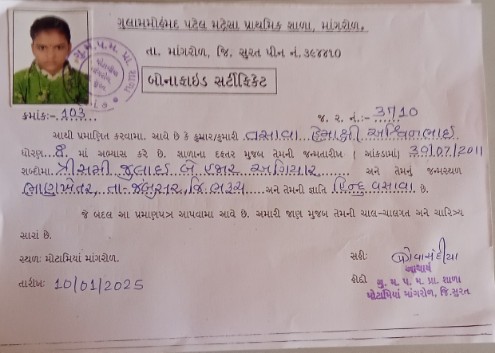 ગુલામમોહંમદ પટેલ મદ્રેસા પ્રાથમિક શાળા, માંગરોળ.
તા. માંગરોળ, જિ. સુરત પીન નં. ૩૯૪૪૧૦
બોનાફાઇડ સર્ટીફિકેટ
ક્રમાંકઃ- 103 જ. ૨. નં.:- 3710
આથી પ્રમાણિત કરવામાં આવે છે કે કુમાર/કુમારી વસાવા હેમાક્ષી અશ્વિનભાઈ
ધોરણ 8 માં અભ્યાસ કરે છે. શાળાના દફતર મુજબ તેમની જન્મતારીખ (આંકડામાં) 30/07/2011
શબ્દોમાં ત્રીસમી જુલાઈ બે હજાર અગિયાર અને તેમનું જન્મસ્થળ
ભાણખેતર, તા-જંબુસર, જિ. ભરૂચ અને તેમની જ્ઞાતિ હિન્દુ વસાવા છે.
જે બદલ આ પ્રમાણપત્ર આપવામાં આવે છે. અમારી જાણ મુજબ તેમની ચાલ-ચાલગત અને ચારિત્ર્ય
સારાં છે.
સ્થળઃ મોટામિયાં માંગરોળ. સહીઃ
આચાર્ય
તારીખઃ 10/01/2025 હોદ્દો જી. મ. પ. મ. પ્રા. શાળા
મોટામિયાં માંગરોળ, જિ.સુરત